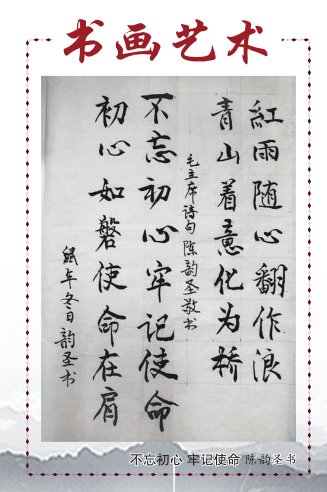 书画艺术
紅雨随心翻作浪
青山着意化为桥
毛主席诗句 陈韵圣敬书
不忘初心牢记使命
初心如磐使命在肩
鼠年冬日韵圣书
不忘初心 牢记使命 陈韵圣书